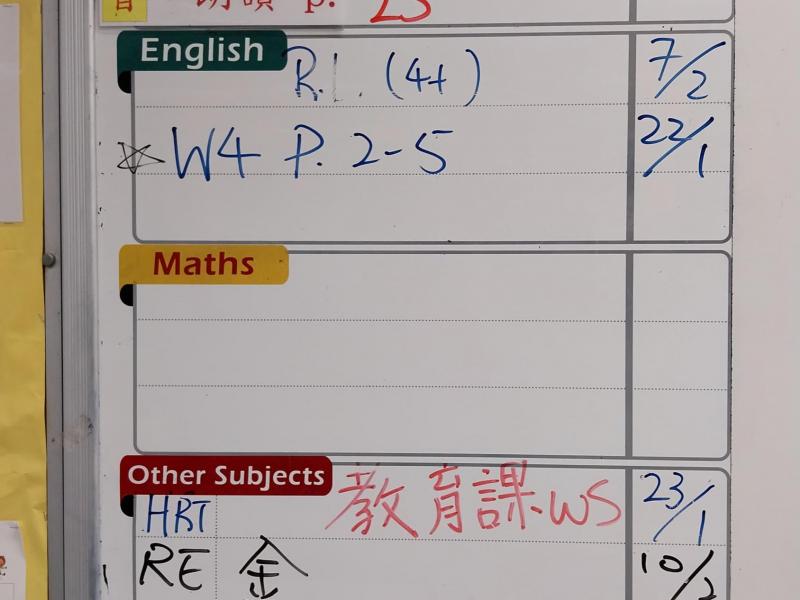 音 朗讀 p. 23
English
R.L. (4+) 7/2
☆ W4 P. 2-5 22/1
Maths
Other Subjects
HRT 教育課.WS 23/1
RE 金 10/2